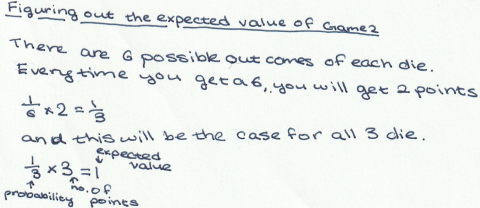 Figuring out the expected value of Game 2
There are 6 possible outcomes of each die.
Everytime you get a 6, you will get 2 points
1/6 × 2 = 1/3
and this will be the case for all 3 die.
1/3 × 3 = 1
expected value
probability
no. of points